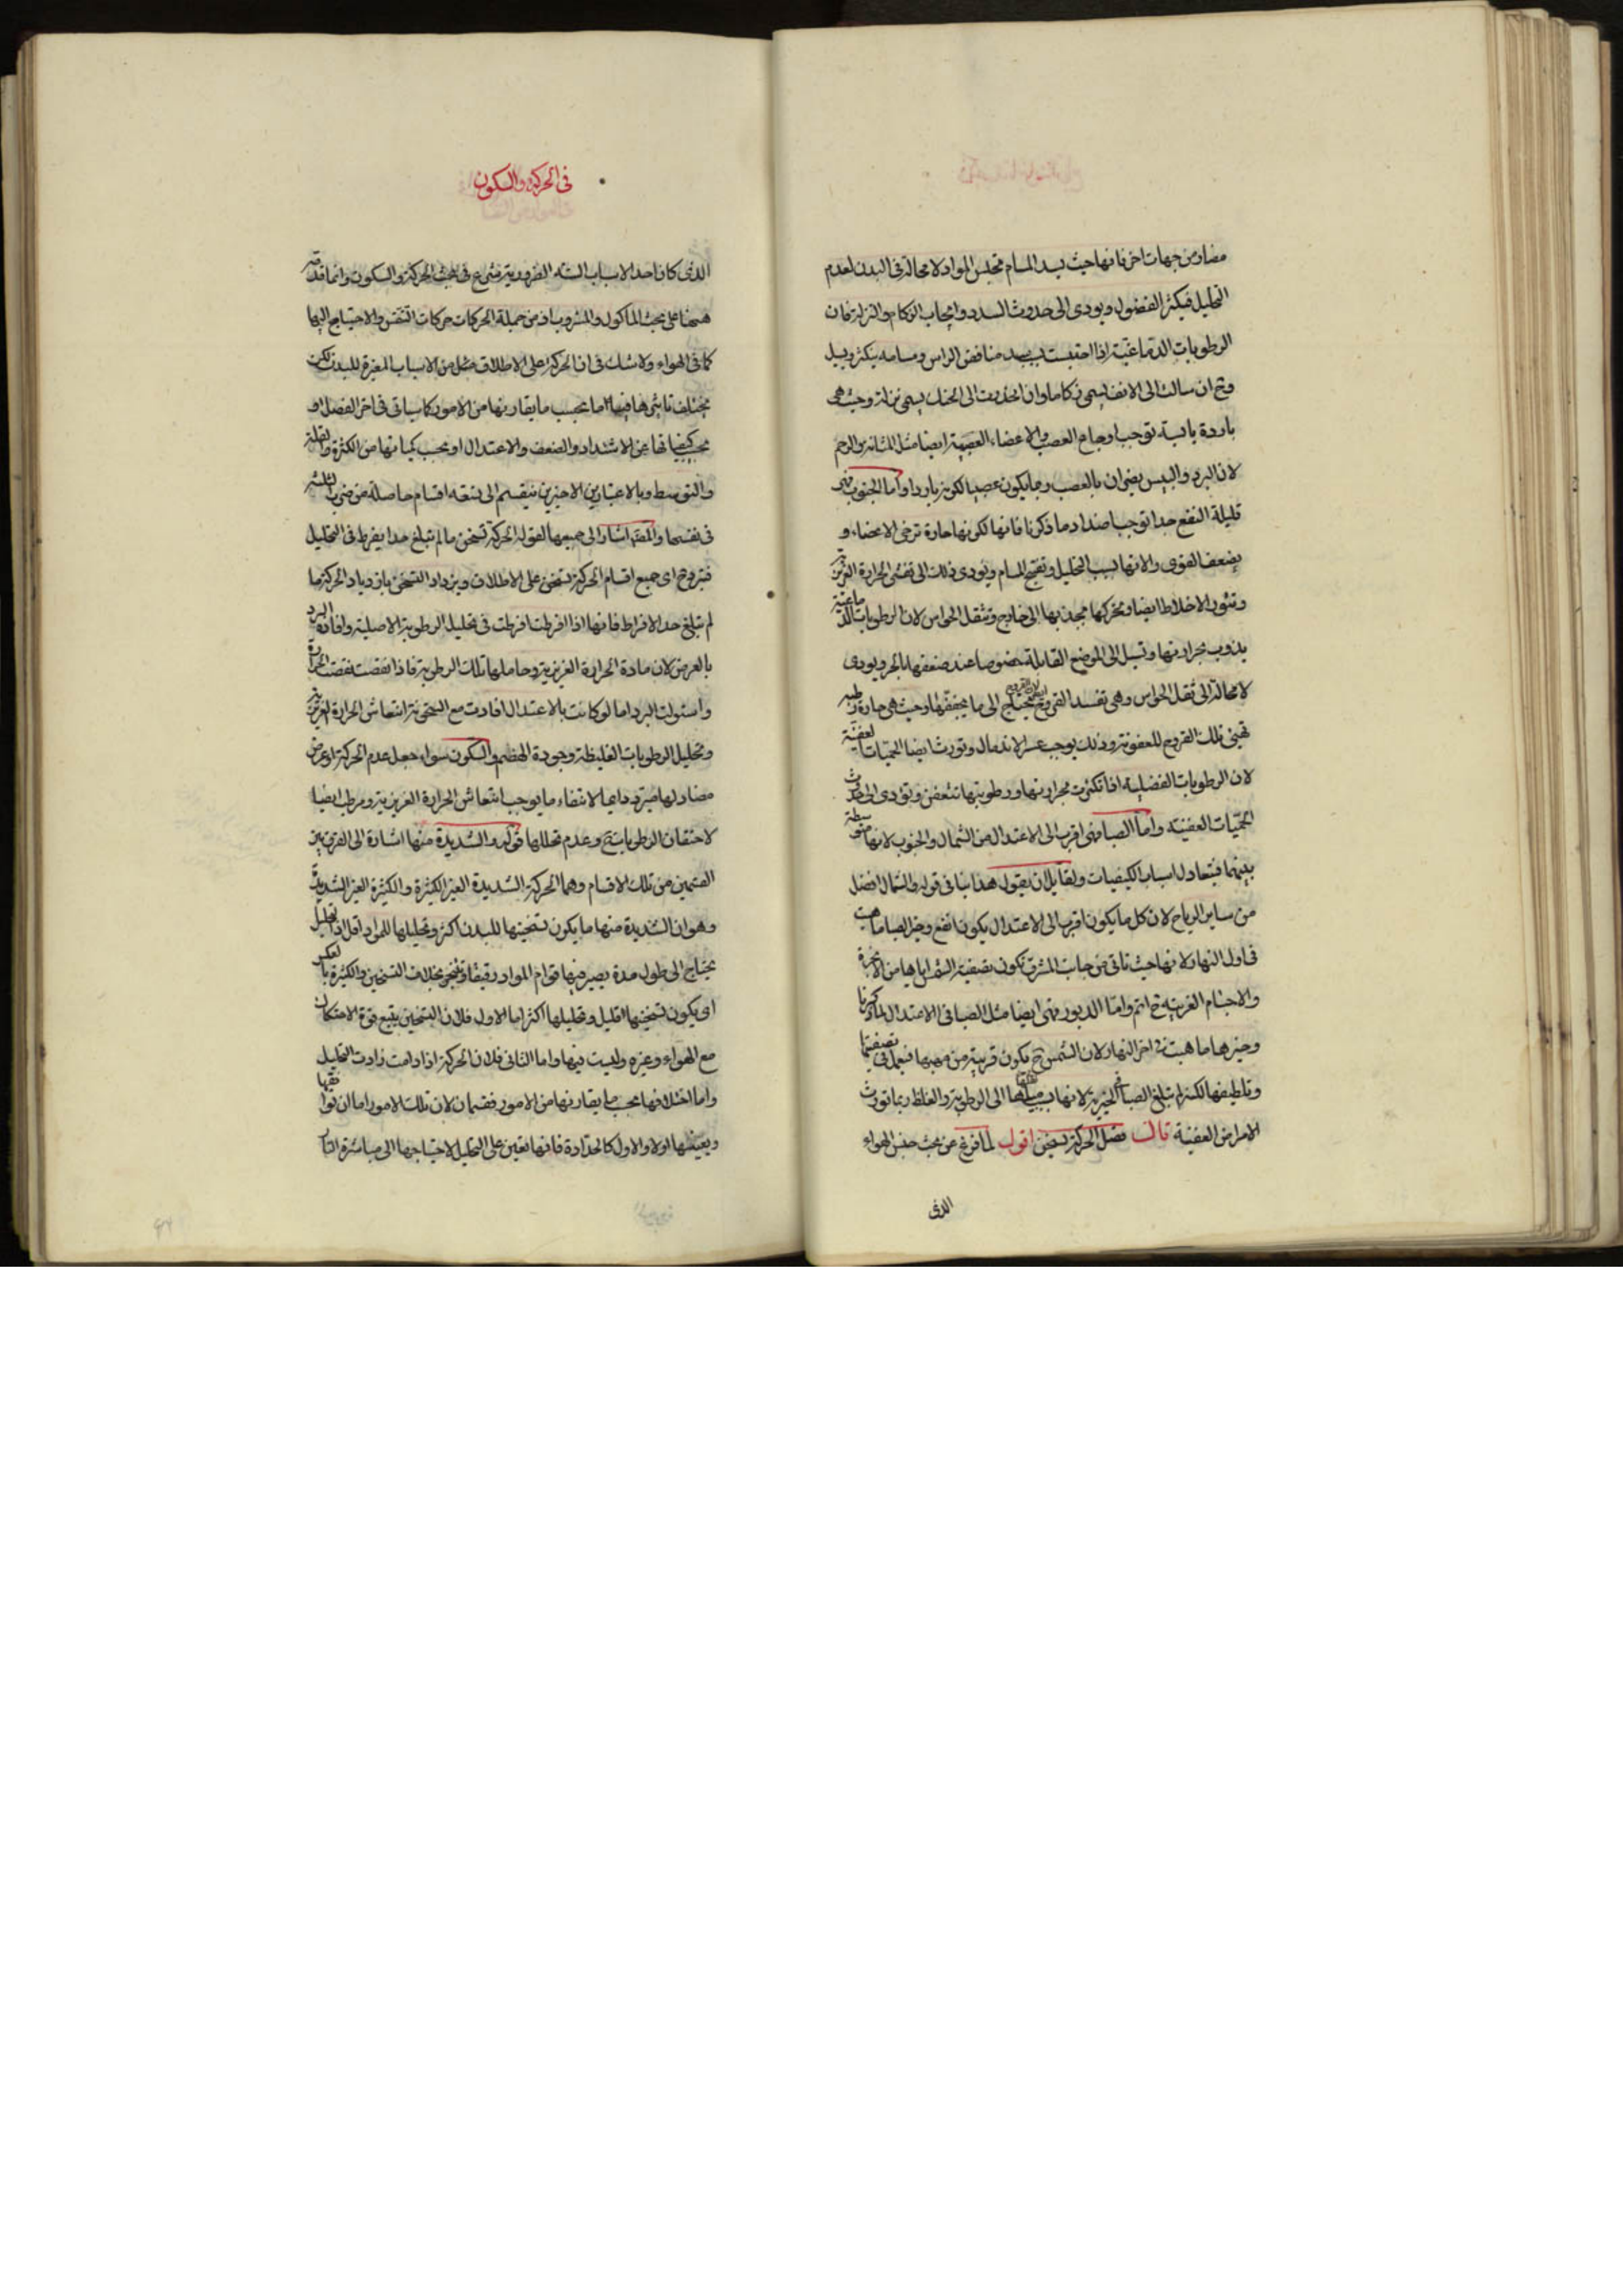 مضار من جهات اخر فانها حيث يسد المسام تحتبس المواد لا محالة فى البدن لعدم
التحليل فيكثر الفضول ويودى الى حدوث السدد وايجاب الزكام والنزلة فان
الرطوبات الدماغية اذا احتبست بسبب سد منافض الراس ومسامه يتكثر ويسيل
وح ان سالت الى الانف يسمى زكاما وان انحدرت الى الحلق يسمى نزلة وحيث هى
باردة يابسة توجب اوجاع العصب والاعضاء العصبية ايضا مثل المثانة والرحم
لان البرد واليبس يضران بالعصب وما يكون عصبيا لكونه باردا واما الجنوب فهى
قليلة النفع جدا توجب اضداد ما ذكرنا فانها لكونها حارة ترخى الاعضاء و
يضعف القوى والاتها لسبب التحليل وتفتح المسام ويودى ذلك الى تفشى الحرارة الغريزية
وتثور الاخلاط ايضا ويحركها بجذبها الى خارج وتثقل الحواس لان الرطوبات الدماغية
يذوب بحرارتها وتسيل الى المواضع القابلة خصوصا عند ضعفها بالحر ويودى
لا محالة الى ثقل الحواس وهى تفسد القروح لان القروح يحتاج الى ما يجففها وحيث هى حارة رطبة
تهيئ تلك القروح للعفونة وذلك يوجب عسر الاندمال وتورث ايضا الحميات العفنية
لان الرطوبات الفضلية اذا تكثرت بحرارتها ورطوبتها تتعفن وتؤدى الى حدوث
الحميات العفنية واما الصبا فهى اقرب الى الاعتدال من الشمال والجنوب لانها متوسطة
بينهما فيتعادل اسباب الكيفيات ولقايل ان يقول هذا ينافى قوله والشمال افضل
من ساير الرياح لان كل ما يكون اقرب الى الاعتدال يكون انفع وخير الصبا ما هبت
فى اول النهار لانها حيث تاتى من جانب المشرق تكون تصفية الشمس اياها من الابخرة
والاجسام الغريبة ح اتم واما الدبور فهى ايضا مثل الصبا فى الاعتدال لما ذكرنا
وخيرها ما هبت فى اخر النهار لان الشمس ح يكون قريبة من مهبها فيعمل فى تصفيتها
وتلطيفها لكنه لم تبلغ الصبا فى الخيرية لانها بسبب ميلها الى الرطوبة والغلظ ربما تورث
الامراض العفنية قال فصل الحركة تسخن اقول لما فرغ عن بحث جنس الهواء
الذى
فى الحركة والسكون
الذى كان احد الاسباب الستة الضرورية شرع فى بحث الحركة والسكون وانما قدمه
ههنا على بحث الماكول والمشروب اذ من جملة الحركات حركات التنفس والاحتياج اليها
كما فى الهواء ولا شك فى ان الحركة على الاطلاق مثل من الاسباب المغيرة للبدن لكن
يختلف تاثيرها فيها اما بحسب ما يقارنها من الامور كما سياتى فى اخر الفصل او
بحسب كيفياتها من الاشتداد والضعف والاعتدال او بحسب كمياتها من الكثرة والقلة
والتوسط وبالاعتبارين الاخيرين ينقسم الى تسعة اقسام حاصلة من ضرب الثلثة
فى نفسها والمصنف اشار الى جميعها لقوله الحركة تسخن ما لم تبلغ حدا يفرط فى التحليل
فتبرد ح اى جميع اقسام الحركة تسخن على الاطلاق ويزداد التسخن بازدياد الحركة ما
لم تبلغ حد الافراط فانها اذا افرطت افرطت فى تحليل الرطوبة الاصلية وافادة البرد
بالعرض لان مادة الحرارة الغريزية وحاملها تلك الرطوبة فاذا نقصت نقصت الحرارة
واستولت البرد اما لو كانت بالاعتدال افادت مع السخونة انتعاش الحرارة الغريزية
وتحليل الرطوبات الغليظة وجودة الهضم والسكون سواء جعل عدم الحركة او عرض
مضاد لها مبرد دايما لانتفاء ما يوجب انتعاش الحرارة الغريزية ومرطب ايضا
لاحتقان الرطوبات ح وعدم تحللها قوله والشديدة منها اشارة الى الفرق بين
القسمين من تلك الاقسام وهما الحركة الشديدة الغير الكثيرة والكثيرة الغير الشديدة
وهو ان الشديدة منها ما يكون تسخينها للبدن اكثر وتحليلها للمواد اقل اذ التحليل
يحتاج الى طول مدة يصير فيها قوام المواد رقيقا وتتبخر بخلاف التسخين والكثيرة بالعكس
اى يكون تسخينها اقليل وتحليلها اكثر اما الاول فلان التسخين يتبع قوة الاحتكاك
مع الهواء وغيره وليست فيها واما الثانى فلان الحركة اذا دامت زادت التحليل
واما اختلافها بحسب ما يقارنها من الامور فقسمان لان تلك الامور اما ان توافقها
ويعينها اولا والاول كالحدادة فانها تعين على التحليل لاحتياجها الى مباشرة النار